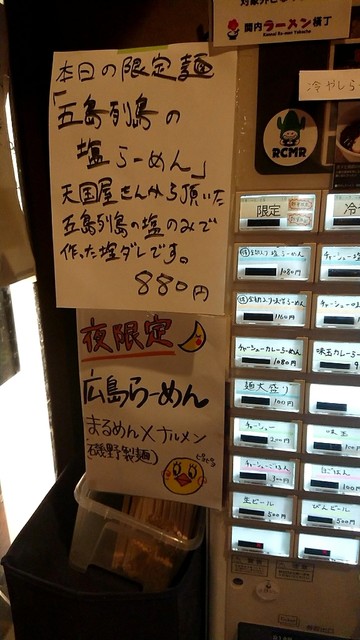 関内ラーメン横丁
本日の限定麺
「五島列島の
塩らーめん」
天国屋さんから頂いた
五島列島の塩のみで
作った塩ダレです。
880円
夜限定
広島らーめん
まるめん×ナルメン
(磯野製麺)
RCMR
限定
1080円
1160円
チャーシューカレーらーめん
1080円
味玉カレーら
麺大盛り
100円
チャーシュー
200円
味玉
300円
ごはん
生ビール
500円
びんビール
500円